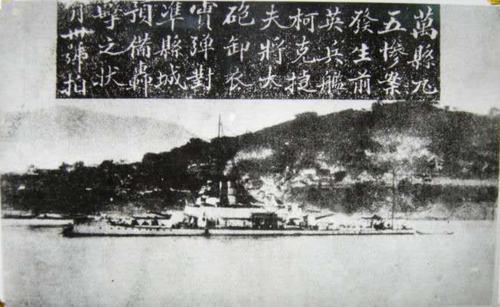 萬縣九
五慘案
發生前
英兵艦
柯克捷
夫將大
砲卸衣
實彈對
準縣城
預備轟
擊之狀
月卅號拍